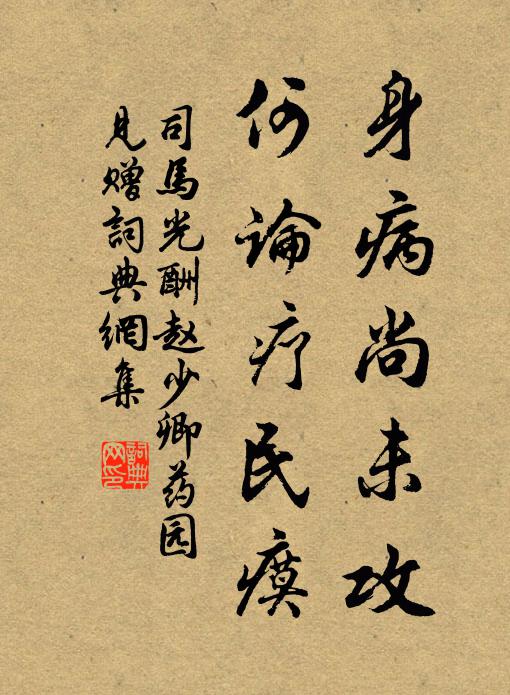 身病尚未攻
何論疗民瘼
司馬光酬赵少卿药园
見贈詞典網集
詞典网印